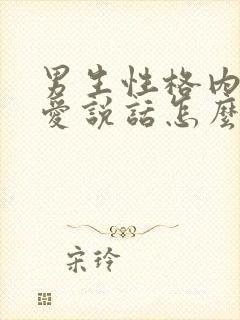 男生性格内
愛說話怎麼
宋玲